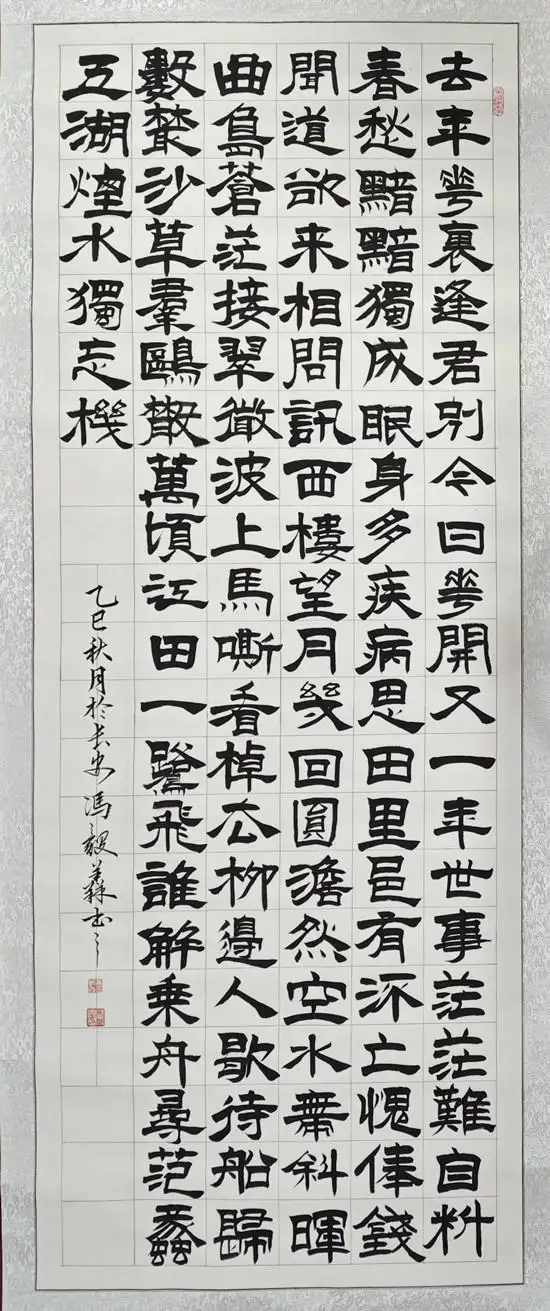 去年花裏逢君別今日花開又一年世事茫茫難自料
春愁黯黯獨成眠身多疾病思田里邑有流亡愧俸錢
聞道欲来相問訊西樓望月幾回圓澹然空水帶斜暉
曲島蒼茫接翠微波上馬嘶看棹去柳邊人歇待船歸
數叢沙草羣鷗散萬頃江田一鷺飛誰解乘舟尋范蠡
五湖煙水獨忘機
乙巳秋月於长安冯毅书